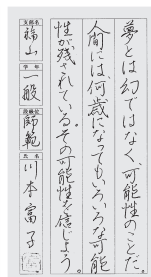 夢とは幻ではなく、可能性のことだ。
人間には、何歳になってもいろいろな可能
性が残されている。その可能性を信じよう。
支部名
福山
学年
一般
段級位
師範
氏名
川本富子